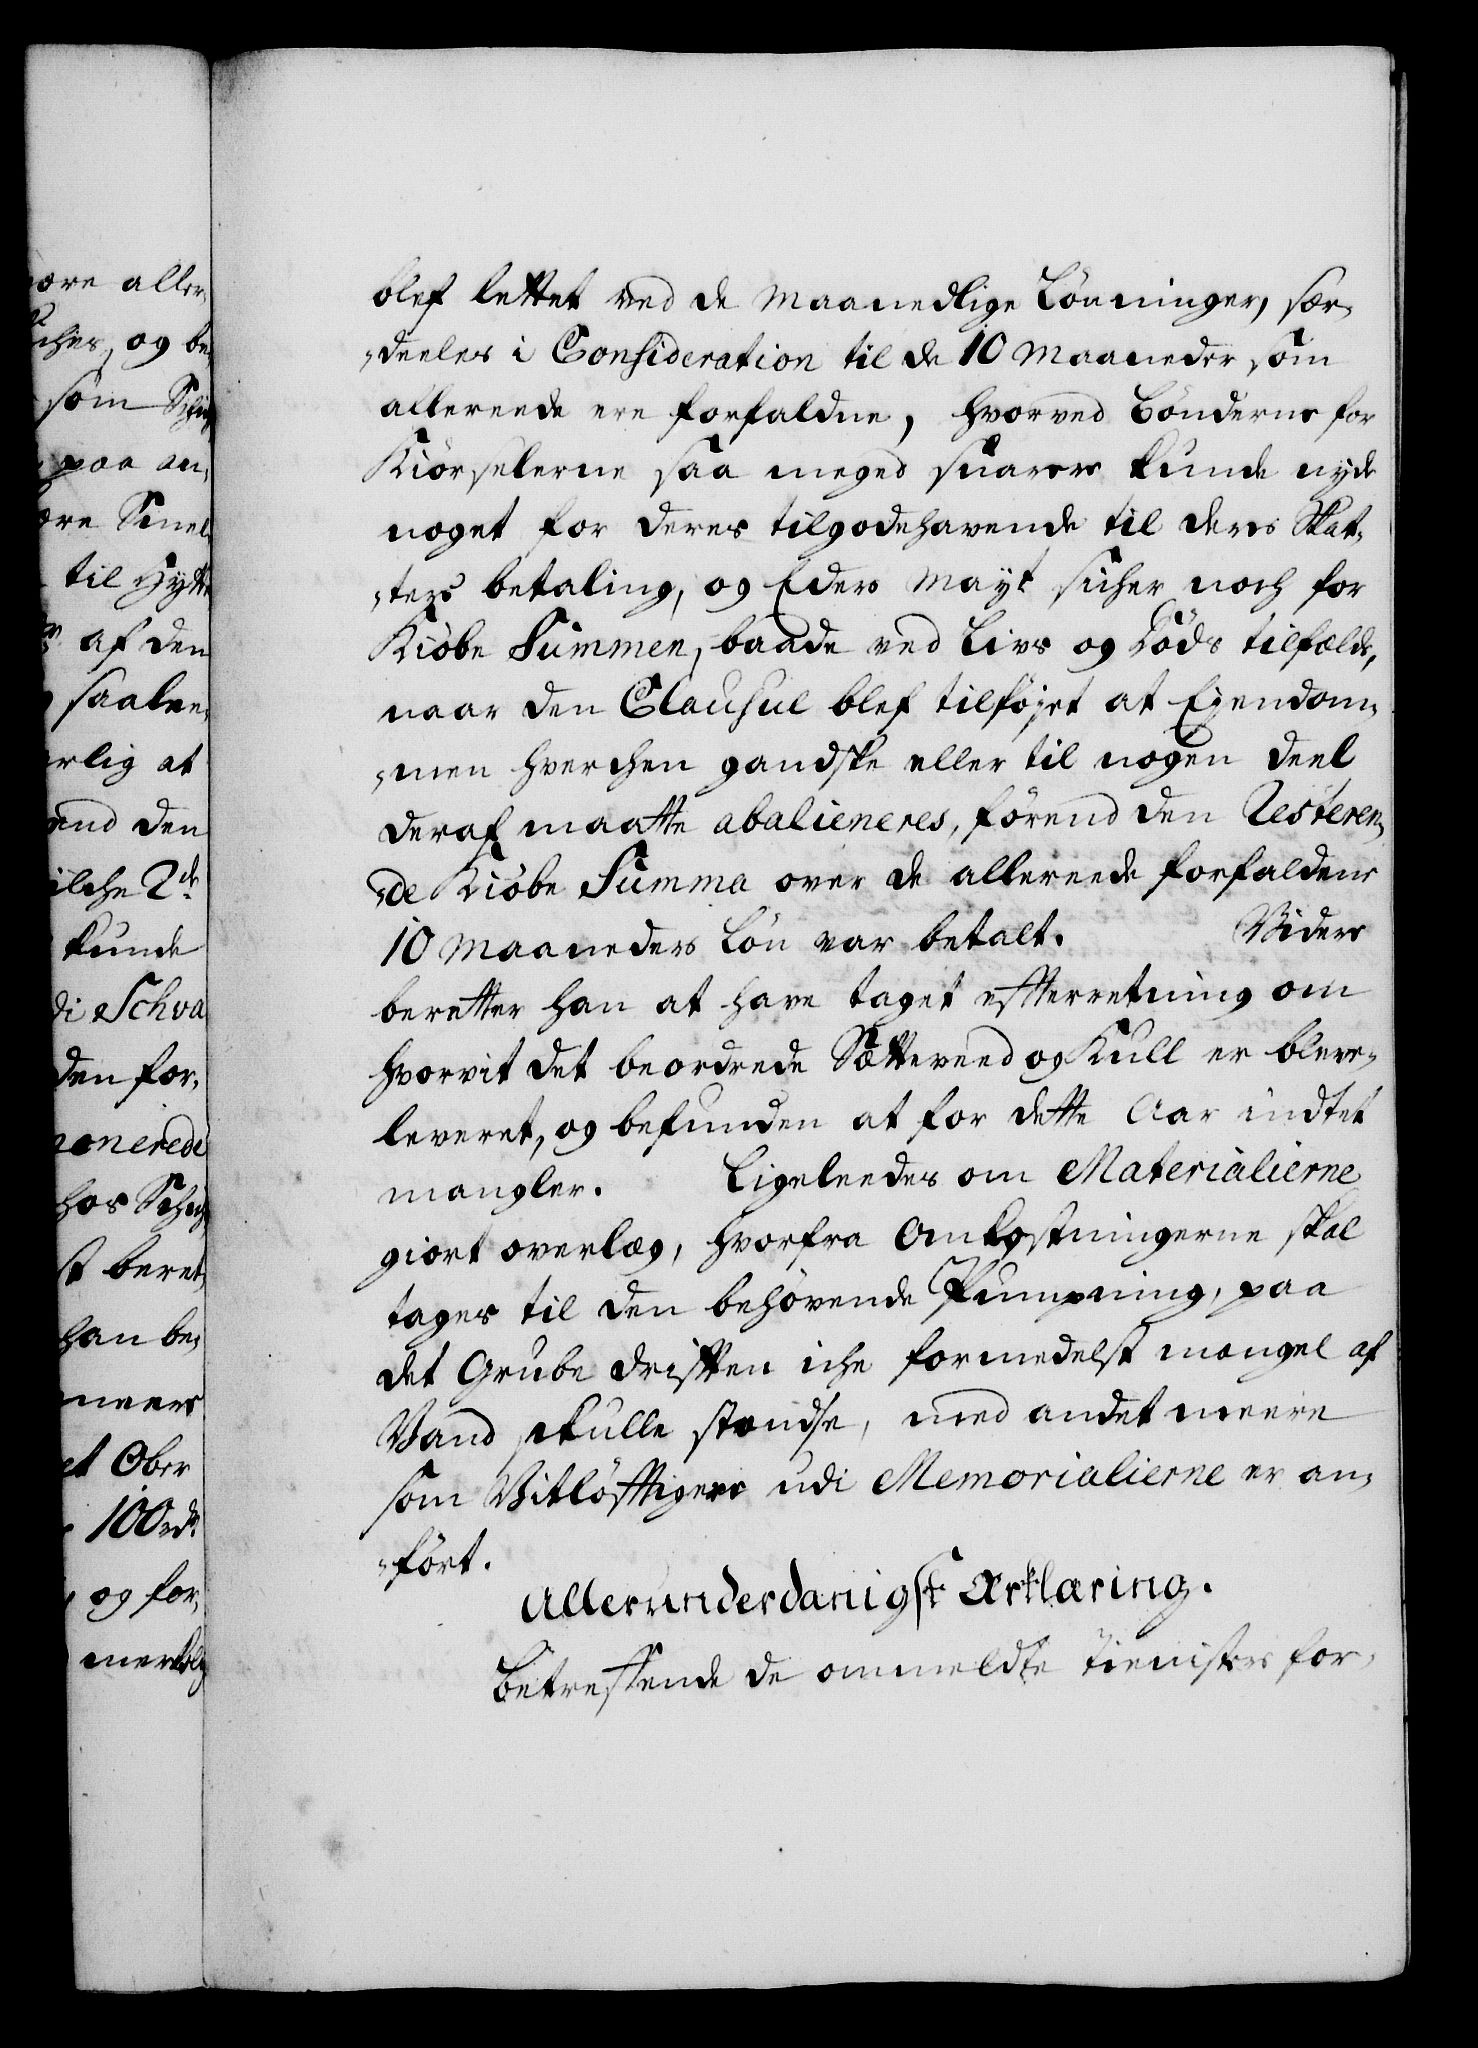 blef lettet ved de maanedlige Lönninger, sær-
-deeles i Consideration til de 10 Maaneder som
allereede ere forfaldne, hvorved Bönderne for
Kiörselerne saa meged snarere kunde nyde
noget for deres tilgodehavende til deres Skat-
-ters betaling, og Eders Mayt sicher noch for
Kiöbe Summen, baade ved Livs og Döds tilfælde,
naar den Clausul blef tilföjet at Ejendom-
-men hverchen gandske eller til nogen deel
deraf maatte abalieneres, förend den Resteren-
-de Kiöbe Summa over de allereede forfaldene
10 Maaneders Lön var betalt. Videre
beretter han at have taget efterretning om
hvorvit det beordrede Sætteveed og Kull er bleve-
leveret, og befunden at for dette Aar indtet
mangler. Ligeleedes om Materialierne
giort overlæg, hvorfra Omkostningerne skal
tages til den behövende Pumpning, paa
det Grube driften iche formedelst mangel af
Vand skulle standse, med andet meere
som Vitlöfftigere udi Memorialierne er an-
-fört.
Allerunderdanigst Erklæring.
Betreffende de ommeldte Tienister for-